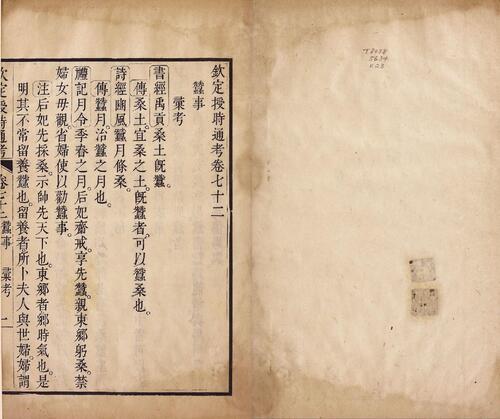 欽定授時通考卷七十二
蠶事
彙考
書經禹貢桑土旣蠶
傳桑土宜桑之土旣蠶者可以蠶桑也
詩經豳風蠶月條桑
傳蠶月治蠶之月也
禮記月令季春之月后妃齋戒享先蠶親東鄉躬桑禁
婦女毋觀省婦使以勸蠶事
注后妃先採桑示師先天下也東鄉者鄉時氣也是
明其不常留養蠶也留養者所卜夫人與世婦婦謂
欽定授時通考 卷七十二 蠶事 彙考 一